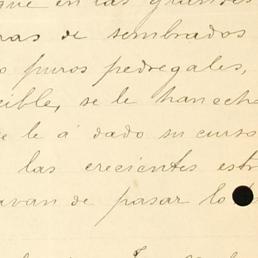 que en las grandes
ras de sembrados
o puros pedregales,
cible, se le han echa
e le á dado su curso
las crecientes est
avan de pasar lo